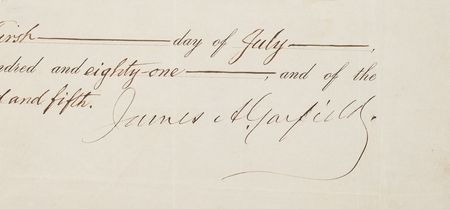 first day of July ,
ndred and eighty-one , and of the
d and fifth.
James A. Garfield.